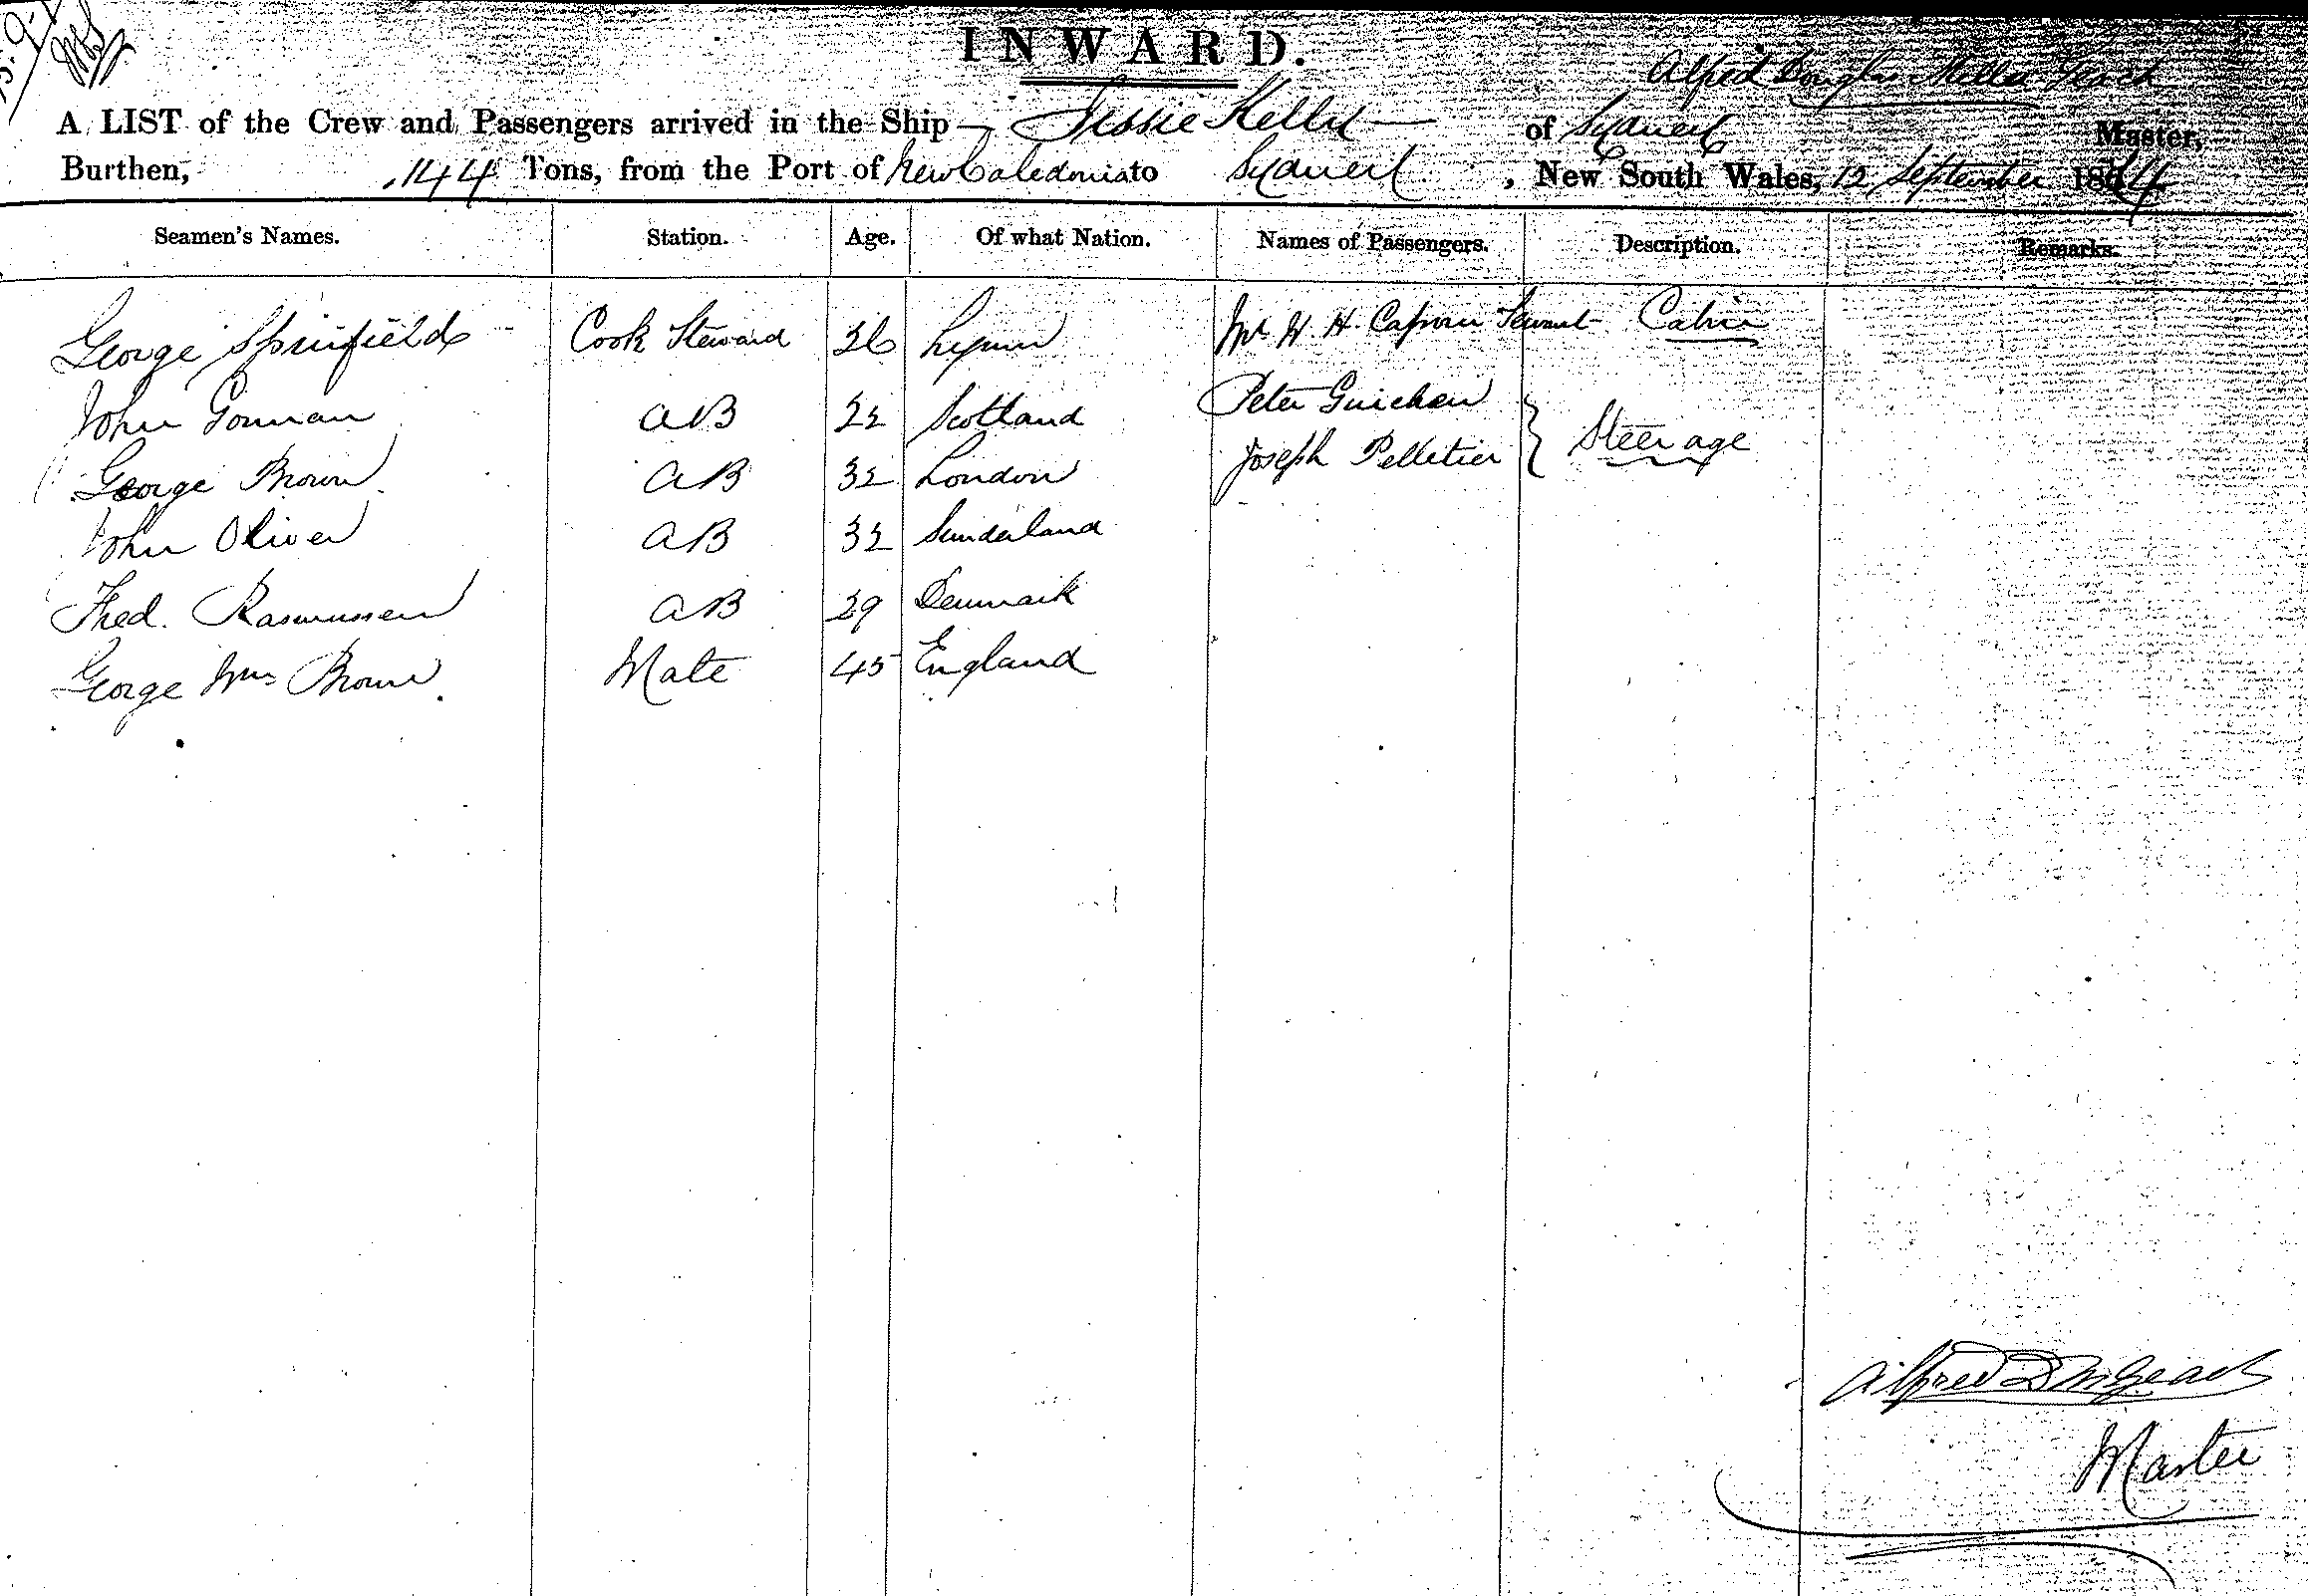 INWARD.
Alfred Douglas Miller Geach
A LIST of the Crew and Passengers arrived in the Ship Jessie Kelly of Sydney Master,
Burthen, 144 Tons, from the Port of New Caledonia to Sydney, New South Wales, 12 September 1884
Seamen's Names. Station. Age. Of what Nation. Names of Passengers. Description. Remarks.
George Cook Steward 26 Mr H. H. Cabin
John Gorman AB 22 Scotland Peter Guichen
George Brown AB 32 London Joseph Pelletier } Steerage
John Oliver AB 32 Sunderland
Fred. Rasmussen AB 29 Denmark
George Wm Brown Mate 45 England
Alfred D M Geach
Master